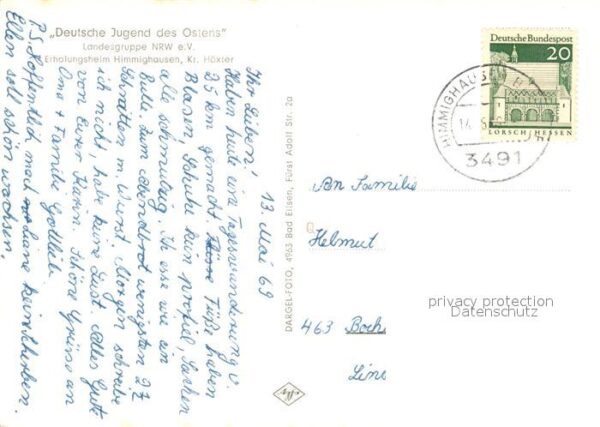 „Deutsche Jugend des Ostens"
Landesgruppe NRW e.V.
Erholungsheim Himmighausen, Kr. Höxter
13. Mai 69
Ihr Lieben!
Haben heute eine Tageswanderung v.
25 km gemacht. Füße haben
Blasen, Schuhe kein Profiel, Sachen
alle schmutzig. Ich esse wie ein
Bulle. Zum Abendbrot wenigsten 2 
Schnitten m. Wurst. Morgen schreibe
ich nicht, habe keine Lust. Alles Gute
von Eurer Schöne Grüße an
Oma + Familie Gottlieb.
P.S. Hoffentlich macht keine Scherben.
Ellen soll schön wachsen.
DARGEL-FOTO, 4963 Bad Eilsen, Fürst Adolf Str. 2a
Deutsche Bundespost
20
LORSCH/HESSEN
HIMMIGHAUSEN
3491
An Familie
Helmut
463 Boch
Line
privacy protection
Datenschutz